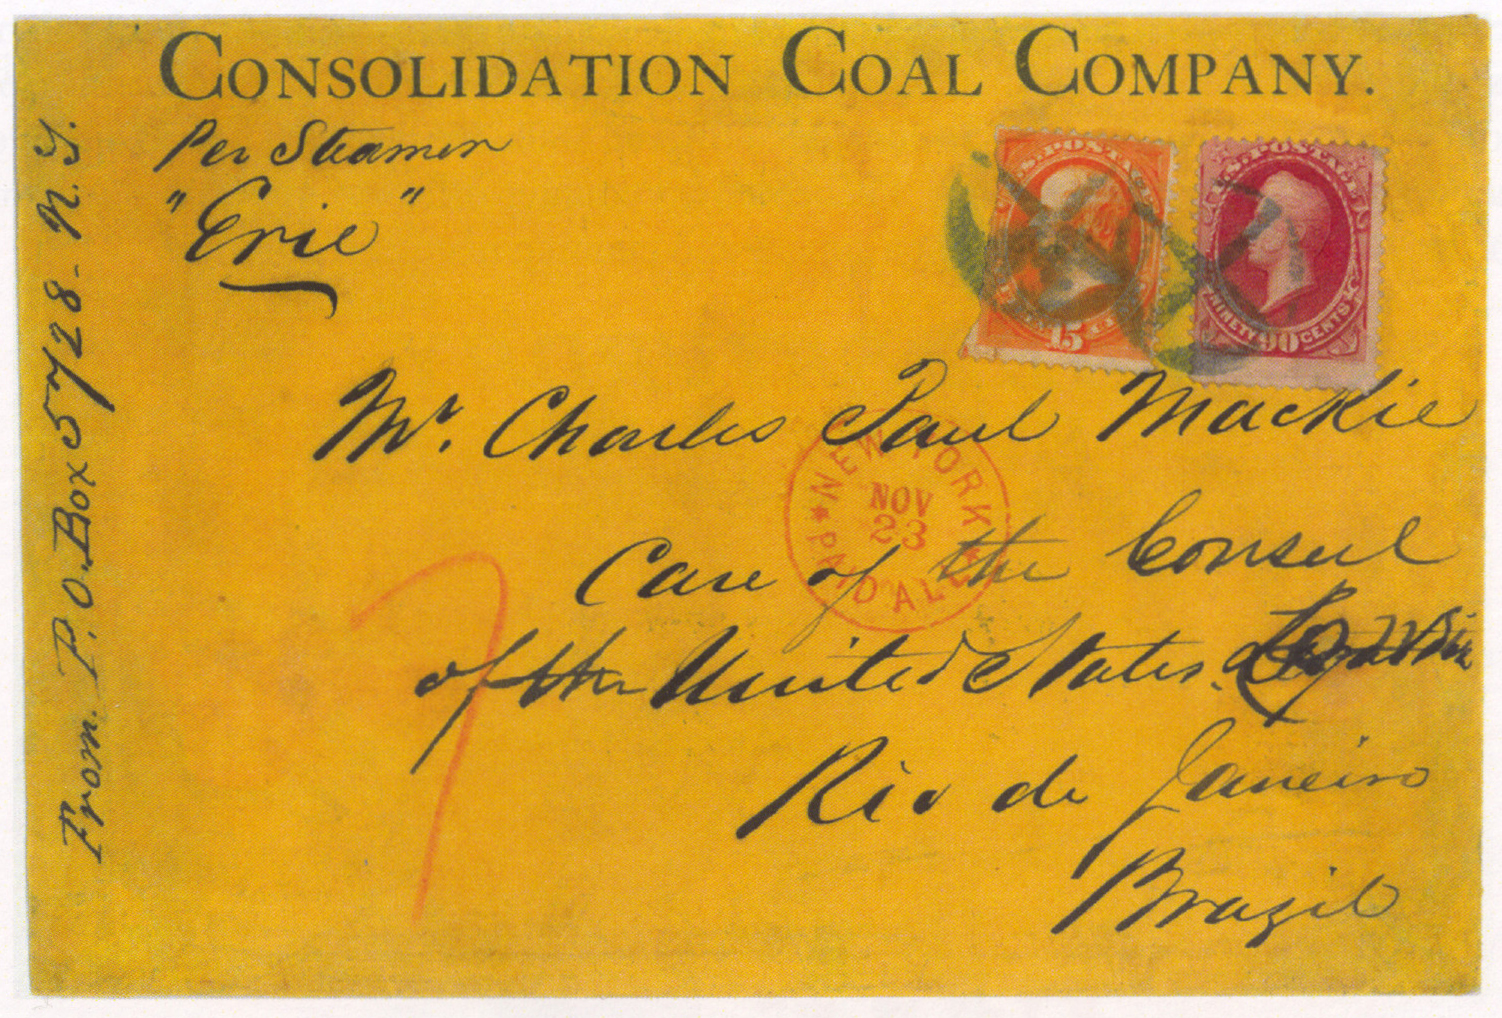 CONSOLIDATION COAL COMPANY.
Per Steamer
"Erie"
From. P.O. Box 5728 - N.Y.
U.S. POSTAGE
15
U.S. POSTAGE
NINETY 90 CENTS
Mr. Charles Paul Mackie
NEW YORK
NOV
23
PAID ALL
Care of the Consul
of the United States.
Rio de Janeiro
Brazil
7